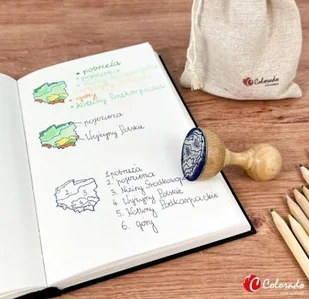 • pobrzeża
• pojezierza
• góry
• Kotliny Podkarpackie
pojezierza
Wyżyny Polskie
1. pobrzeża
2. pojezierza
3. Niziny Środkowop
4. Wyżyny Polskie
5. Kotliny Podkarpackie
6. góry
Colorado
Colorado